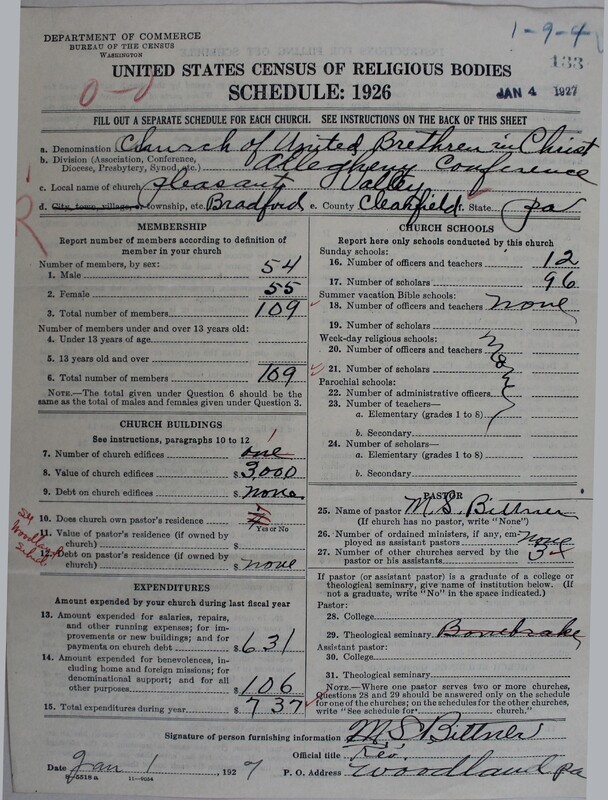 DEPARTMENT OF COMMERCE
BUREAU OF THE CENSUS
WASHINGTON
1-9-4
133
UNITED STATES CENSUS OF RELIGIOUS BODIES
SCHEDULE: 1926
JAN 4 1927
FILL OUT A SEPARATE SCHEDULE FOR EACH CHURCH. SEE INSTRUCTIONS ON THE BACK OF THIS SHEET
a. Denomination Church of United Brethren in Christ
b. Division (Association, Conference, Diocese, Presbytery, Synod, etc.) Allegheny Conference
c. Local name of church Pleasant Valley
d. City, town, village, or township, etc. Bradford e. County Clearfield f. State Pa
MEMBERSHIP
Report number of members according to definition of
member in your church
Number of members, by sex:
1. Male 54
2. Female 55
3. Total number of members 109
Number of members under and over 13 years old:
4. Under 13 years of age
5. 13 years old and over
6. Total number of members 109
NOTE.—The total given under Question 6 should be
the same as the total of males and females given under Question 3.
CHURCH BUILDINGS
See instructions, paragraphs 10 to 12
7. Number of church edifices one 1
8. Value of church edifices $ 3,000
9. Debt on church edifices $ none
10. Does church own pastor's residence
Yes or No
11. Value of pastor's residence (if owned by
church) $
12. Debt on pastor's residence (if owned by
church) $ none
Woodland
EXPENDITURES
Amount expended by your church during last fiscal year
13. Amount expended for salaries, repairs,
and other running expenses; for im-
provements or new buildings; and for
payments on church debt $ 631
14. Amount expended for benevolences, in-
cluding home and foreign missions; for
denominational support; and for all
other purposes $ 106
15. Total expenditures during year $ 737
CHURCH SCHOOLS
Report here only schools conducted by this church
Sunday schools:
16. Number of officers and teachers 12
17. Number of scholars 96
Summer vacation Bible schools:
18. Number of officers and teachers none
19. Number of scholars
Week-day religious schools:
20. Number of officers and teachers
21. Number of scholars none
Parochial schools:
22. Number of administrative officers
23. Number of teachers—
a. Elementary (grades 1 to 8)
b. Secondary
24. Number of scholars—
a. Elementary (grades 1 to 8)
b. Secondary
PASTOR
25. Name of pastor M. S. Bittner
(If church has no pastor, write "None")
26. Number of ordained ministers, if any, em-
ployed as assistant pastors none
27. Number of other churches served by the
pastor or his assistants 3
If pastor (or assistant pastor) is a graduate of a college or
theological seminary, give name of institution below. (If
not a graduate, write "No" in the space indicated.)
Pastor:
28. College
29. Theological seminary Bonebrake
Assistant pastor:
30. College
31. Theological seminary
NOTE.—Where one pastor serves two or more churches,
Questions 28 and 29 should be answered only on the schedule
for one of the churches; on the schedules for the other churches,
write "See schedule for church."
Signature of person furnishing information M S Bittner
Official title Rev.
Date Jan 1 1927 P. O. Address Woodland Pa
11—9054